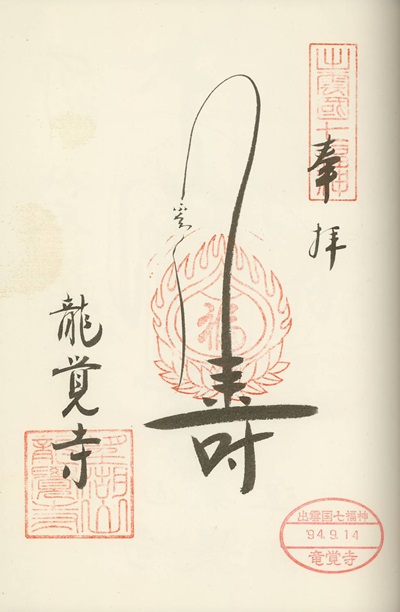 出雲國七福神
奉拝
壽
福
龍覚寺
龍覺寺
出雲国七福神
'94.9.14
竜覚寺